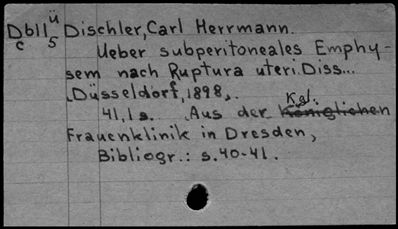 Dbll ü Dischler, Carl Herrmann.
c 5 Ueber subperitoneales Emphy-
sem nach Ruptura uteri. Diss...
Düsseldorf, 1898.
41,1 s. Aus der Kgl. Königlichen
Frauenklinik in Dresden,
Bibliogr.: s.40-41.